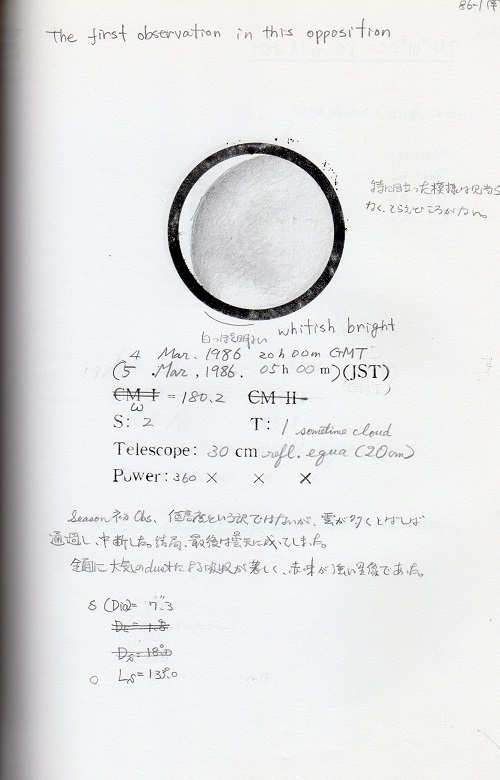 86-1
The first observation in this opposition
特に目立った模様は見当ら
なく、とらえどころがない。
白っぽく明るい whitish bright
4 Mar. 1986 20h 00m GMT
(5 Mar, 1986. 05h 00m)(JST)
CM I = 180.2 CM II
ω
S: 2 T: 1 sometime cloud
Telescope: 30 cm refl. equa (20cm)
Power: 360 × × ×
Season 初 Obs. 低高度という訳ではないが、雲が多くしばしば
通過し、中断した。結局、最後は曇天に成ってしまった。
全面に大気のdustによる吸収が著しく、赤味が強い星像であった。
δ (Dia)= 7".3
De = 1.8
Ds = 18.0
Ls = 133°.0